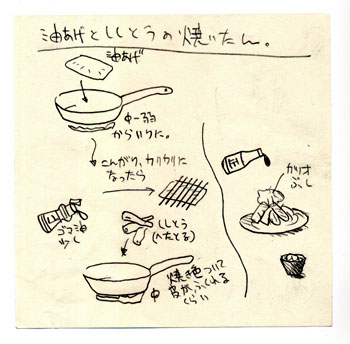 油あげとししとうの焼いたん。
油あげ
中〜弱
からいりに。
こんがり、カリカリに
なったら
ゴマ油
少し
ししとう
(へたとる)
中
焼き色ついて
皮がふくれる
くらい
かつオ
ぶし